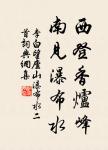 西登香爐峰
南見瀑布水
李白望廬山瀑布水二
首詞典網集